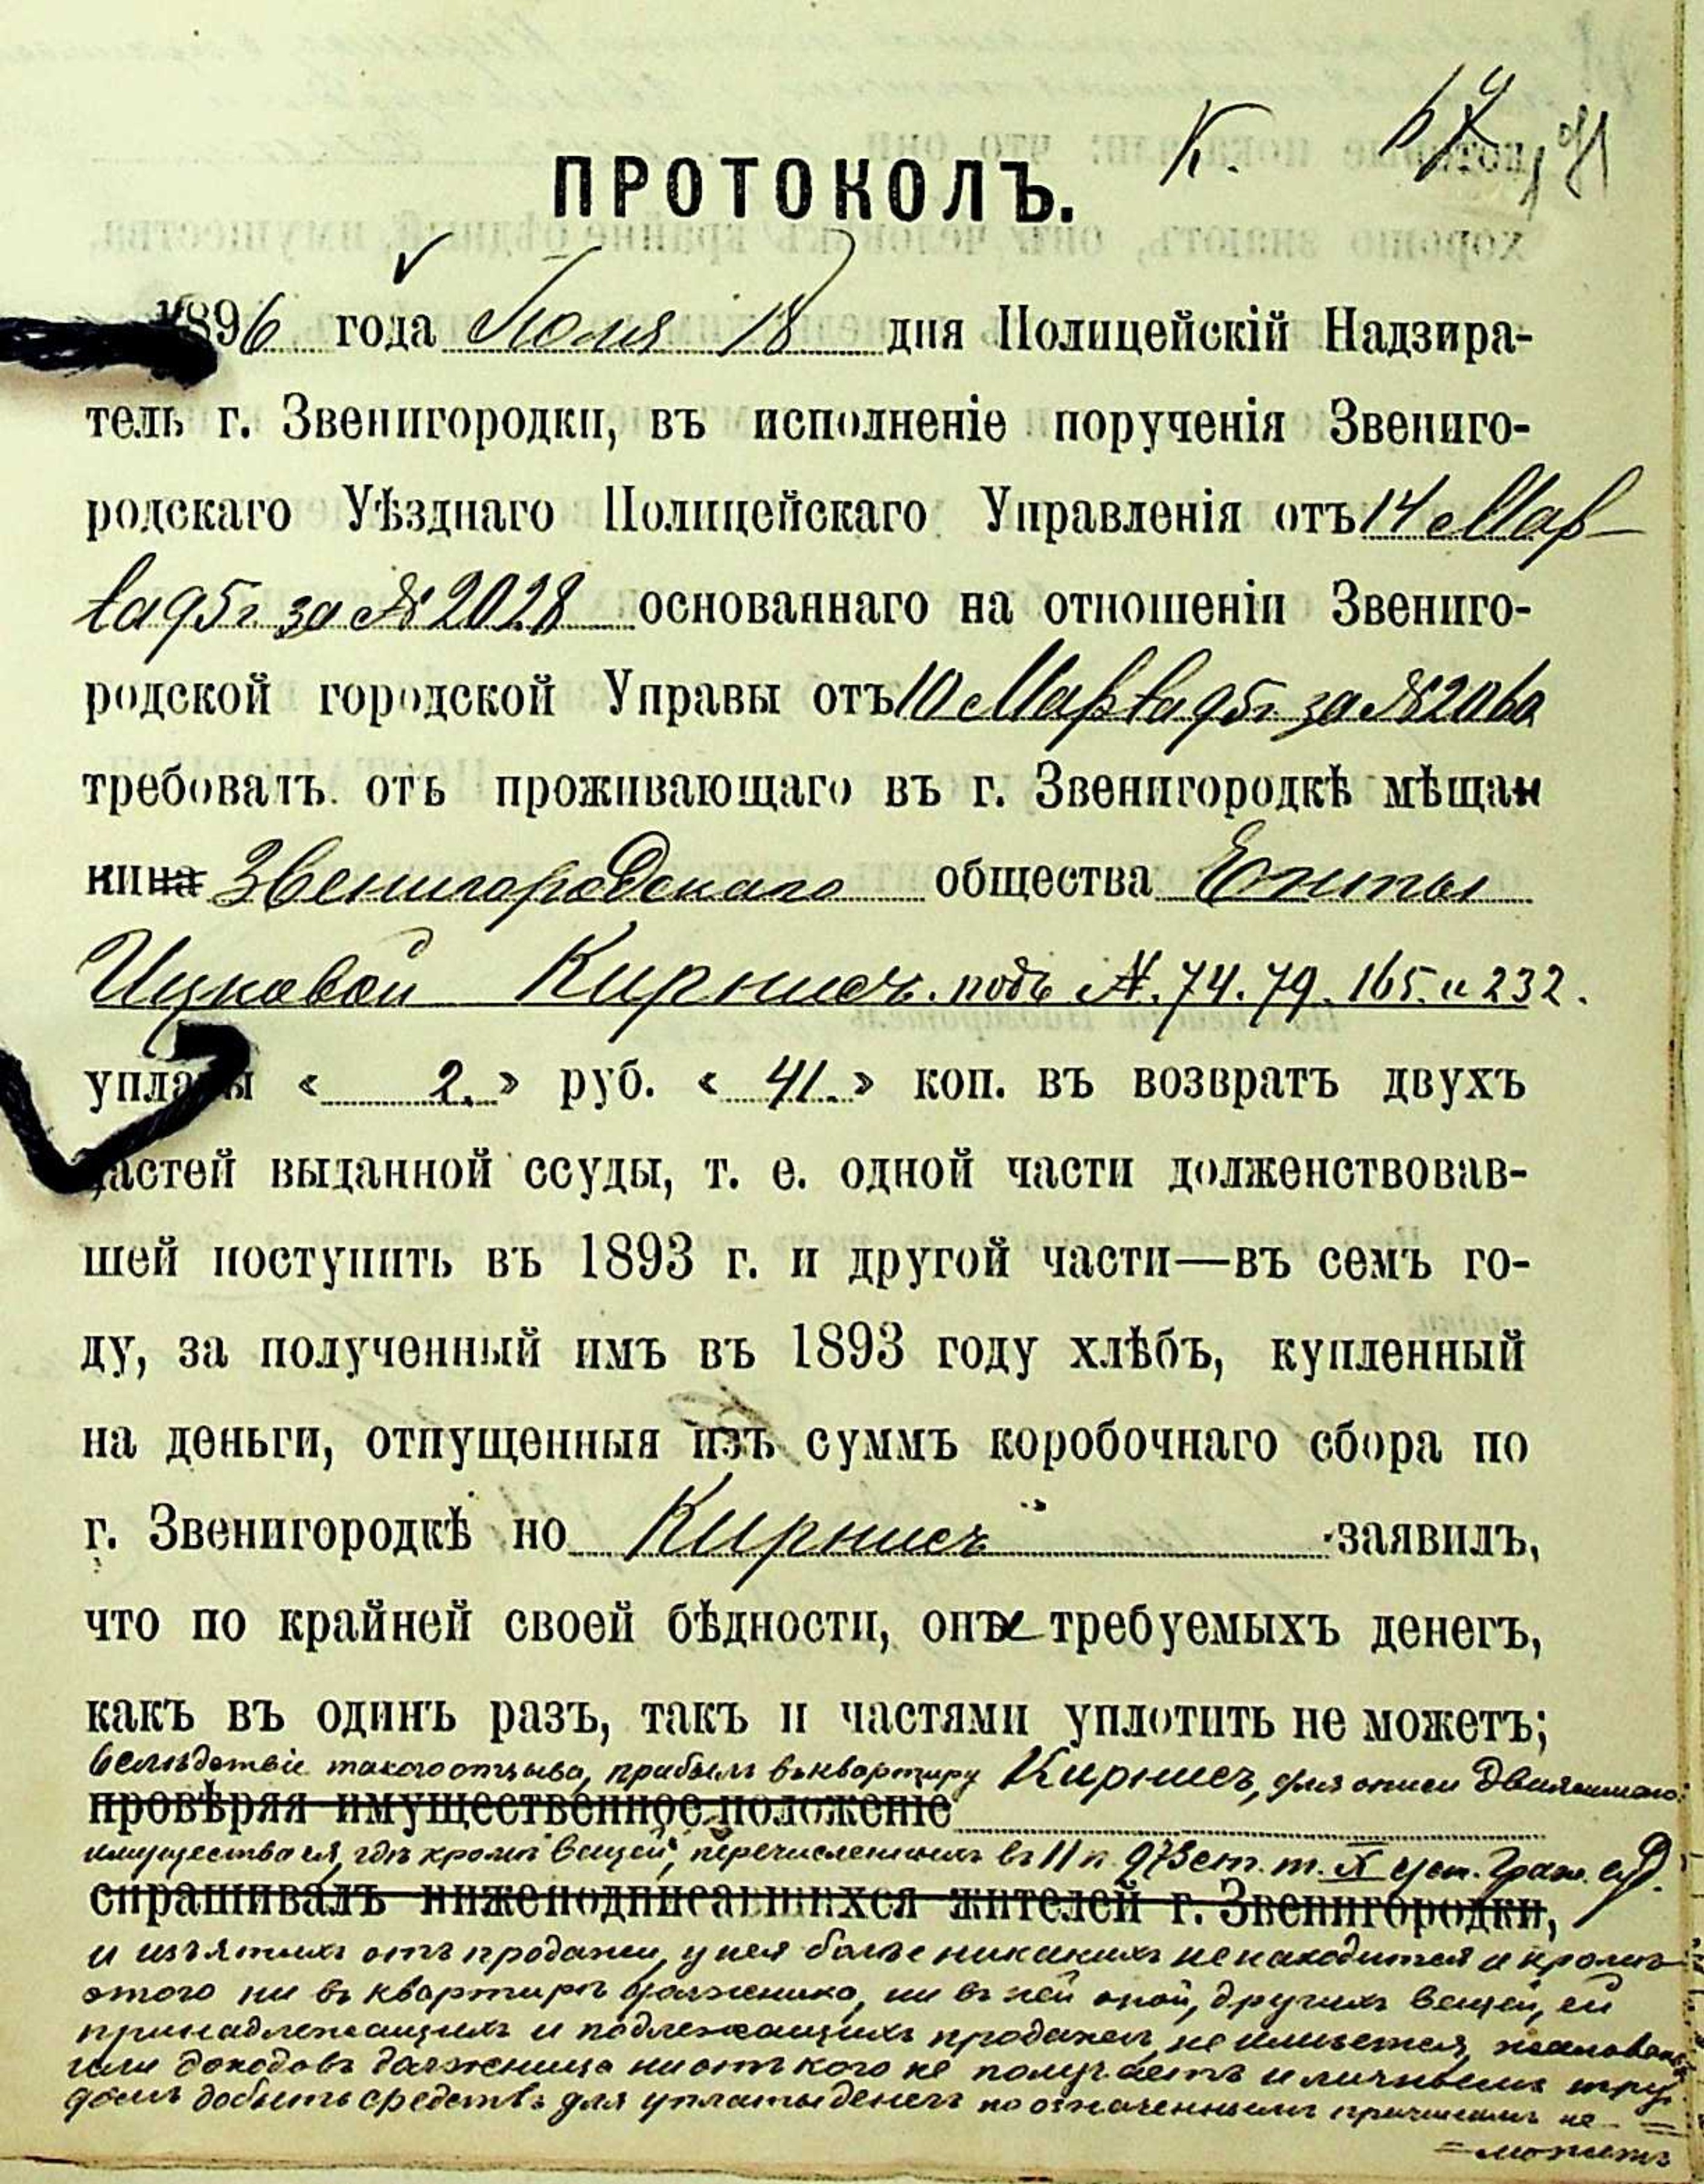 К.
ПРОТОКОЛЪ.
1896 года Іюля 18 дня Полицейскій Надзира-
тель г. Звенигородки, въ исполненіе порученія Звениго-
родскаго Уѣзднаго Полицейскаго Управленія отъ 14 Мар-
та 95 г. за № 2028 основаннаго на отношеніи Звениго-
родской городской Управы отъ 10 Марта 95 г. за №
требовать отъ проживающаго въ г. Звенигородкѣ мѣщан
кина Звенигородскаго общества
Ицковой Кирнисъ подъ №. 74. 79. 165. и 232.
уплаты « 2. » руб. « 41. » коп. въ возвратъ двухъ
частей выданной ссуды, т. е. одной части долженствовав-
шей поступить въ 1893 г. и другой части—въ семъ го-
ду, за полученный имъ въ 1893 году хлѣбъ, купленный
на деньги, отпущенныя изъ суммъ коробочнаго сбора по
г. Звенигородкѣ но Кирнисъ заявилъ,
что по крайней своей бѣдности, онъ требуемыхъ денегъ,
какъ въ одинъ разъ, такъ и частями уплотить не можетъ;
вслѣдствіе такого отзыва, прибылъ въ квартиру Кирнисъ, для описи движимаго
провѣряя имущественное положеніе
имущества ея, гдѣ кромѣ вещей, перечисленныхъ въ 11 п. 973 ст. т. X уст. Граж. суд.
спрашивалъ нижеподписавшихся жителей г. Звенигородки,
и изъятыхъ отъ продажи, у нея болѣе никакихъ не находится и кромѣ
этого ни въ квартирѣ должника, ни въ ней другихъ вещей, ей
принадлежащихъ и подлежащихъ продажѣ, не имѣется,
или доходовъ должница ни отъ кого не получаетъ и личнымъ тру
домъ добыть средствъ для уплаты денегъ по означеннымъ причинамъ не
можетъ